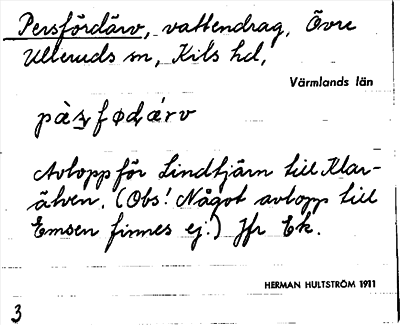 Persfördärv, vattendrag, Övre
Ulleruds sn, Kils hd,
Värmlands län
pàs̱fødárv
Avlopp för Lindtjärn till Klar-
älven. (Obs! Något avlopp till
Emsen finnes ej.) Jfr Ek.
HERMAN HULTSTRÖM 1911
3